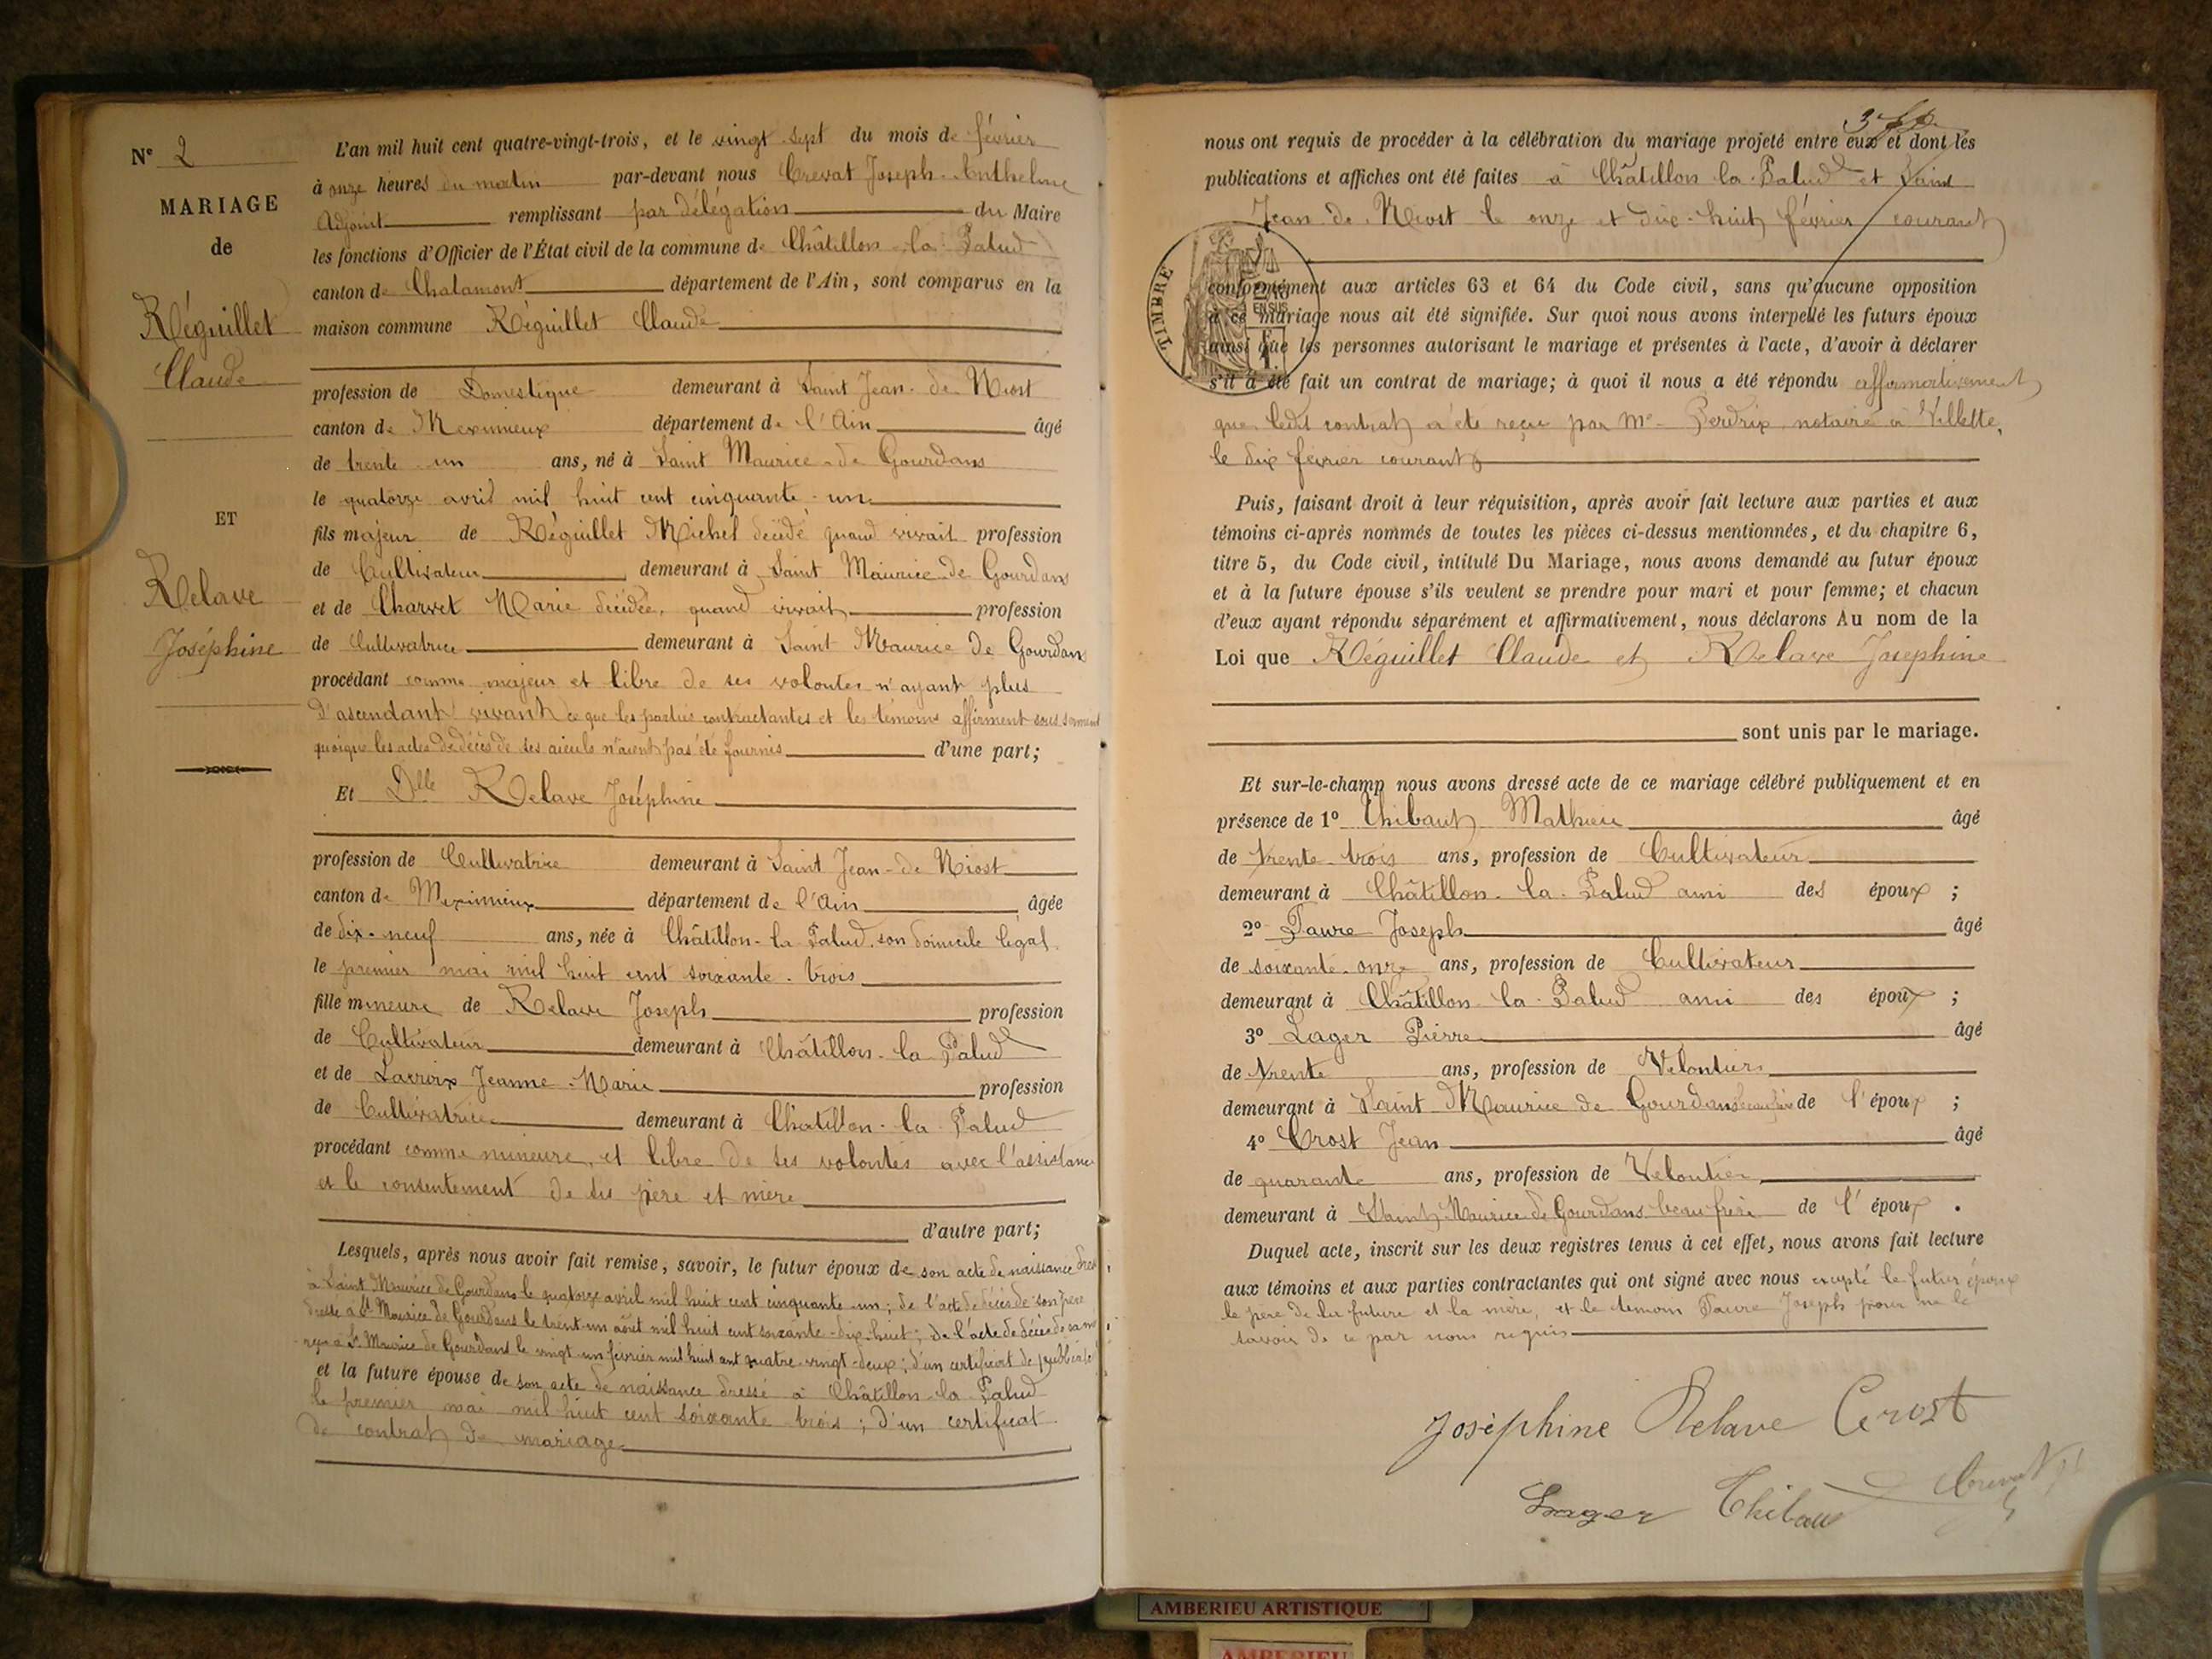 N° 2
MARIAGE
de
Réguillet
Claude
ET
Relave
Joséphine
L'an mil huit cent quatre-vingt-trois, et le vingt sept du mois de février
à onze heures du matin par-devant nous Crevat Joseph-Anthelme
Adjoint remplissant par délégation du Maire
les fonctions d'Officier de l'État civil de la commune de Châtillon-la-Palud
canton de Chalamont département de l'Ain, sont comparus en la
maison commune Réguillet Claude
profession de Domestique demeurant à Saint Jean-de-Niost
canton de Meximieux département de l'Ain âgé
de trente-un ans, né à Saint Maurice-de Gourdans
le quatorze avril mil huit cent cinquante-un
fils majeur de Réguillet Michel décédé quand vivait profession
de Cultivateur demeurant à Saint Maurice-de Gourdans
et de Charvet Marie décédée, quand vivait profession
de Cultivatrice demeurant à Saint Maurice de Gourdans
procédant comme majeur et libre de ses volontés n'ayant plus
d'ascendant vivant ce que les parties contractantes et les témoins affirment sous serment
quoique les actes de décès de ses aïeuls n'aient pas été fournis d'une part;
Et Dlle Relave Joséphine
profession de Cultivatrice demeurant à Saint Jean-de Niost
canton de Meximieux département de l'Ain âgée
de dix-neuf ans, née à Châtillon-la Palud, son domicile légal
le premier mai mil huit cent soixante-trois
fille mineure de Relave Joseph profession
de Cultivateur demeurant à Châtillon-la Palud
et de Lacroix Jeanne-Marie profession
de Cultivatrice demeurant à Châtillon-la Palud
procédant comme mineure, et libre de ses volontés avec l'assistance
et le consentement de ses père et mère
d'autre part;
Lesquels, après nous avoir fait remise, savoir, le futur époux de son acte de naissance
à Saint Maurice de Gourdans le quatorze avril mil huit cent cinquante-un; de l'acte de décès de son père
dressé à St Maurice de Gourdans le trent-un août mil huit cent soixante-dix-huit; de l'acte de décès de sa
reçu à St Maurice de Gourdans le vingt-un février mil huit cent quatre-vingt-deux; d'un certificat de
et la future épouse de son acte de naissance dressé à Châtillon-la Palud
le premier mai mil huit cent soixante trois; d'un certificat
de contrat de mariage
nous ont requis de procéder à la célébration du mariage projeté entre eux et dont les
publications et affiches ont été faites à Châtillon la-Palud et Saint
Jean-de-Niost le onze et dix-huit février courant
TIMBRE
conformément aux articles 63 et 64 du Code civil, sans qu'aucune opposition
à ce mariage nous ait été signifiée. Sur quoi nous avons interpellé les futurs époux
ainsi que les personnes autorisant le mariage et présentes à l'acte, d'avoir à déclarer
s'il a été fait un contrat de mariage; à quoi il nous a été répondu affirmativement
que ledit contrat a été reçu par Me Perdrix notaire à Villette,
le dix février courant
Puis, faisant droit à leur réquisition, après avoir fait lecture aux parties et aux
témoins ci-après nommés de toutes les pièces ci-dessus mentionnées, et du chapitre 6,
titre 5, du Code civil, intitulé Du Mariage, nous avons demandé au futur époux
et à la future épouse s'ils veulent se prendre pour mari et pour femme; et chacun
d'eux ayant répondu séparément et affirmativement, nous déclarons Au nom de la
Loi que Réguillet Claude et Relave Joséphine
sont unis par le mariage.
Et sur-le-champ nous avons dressé acte de ce mariage célébré publiquement et en
présence de 1° Thibaut Mathieu âgé
de trente-trois ans, profession de Cultivateur
demeurant à Châtillon-la-Palud ami des époux ;
2° Faure Joseph âgé
de soixante-onze ans, profession de Cultivateur
demeurant à Châtillon-la-Palud ami des époux ;
3° Lager Pierre âgé
de trente ans, profession de Veloutier
demeurant à Saint Maurice de Gourdans beau frère de l'époux ;
4° Crost Jean âgé
de quarante ans, profession de Veloutier
demeurant à Saint Maurice de Gourdans beau frère de l'époux .
Duquel acte, inscrit sur les deux registres tenus à cet effet, nous avons fait lecture
aux témoins et aux parties contractantes qui ont signé avec nous excepté le futur époux
le père de la future et la mère, et le témoin Faure Joseph pour ne le
savoir de ce par nous requis
Joséphine Relave Crost
Lager Thibaut Crevat
AMBERIEU ARTISTIQUE
AMBERIEU